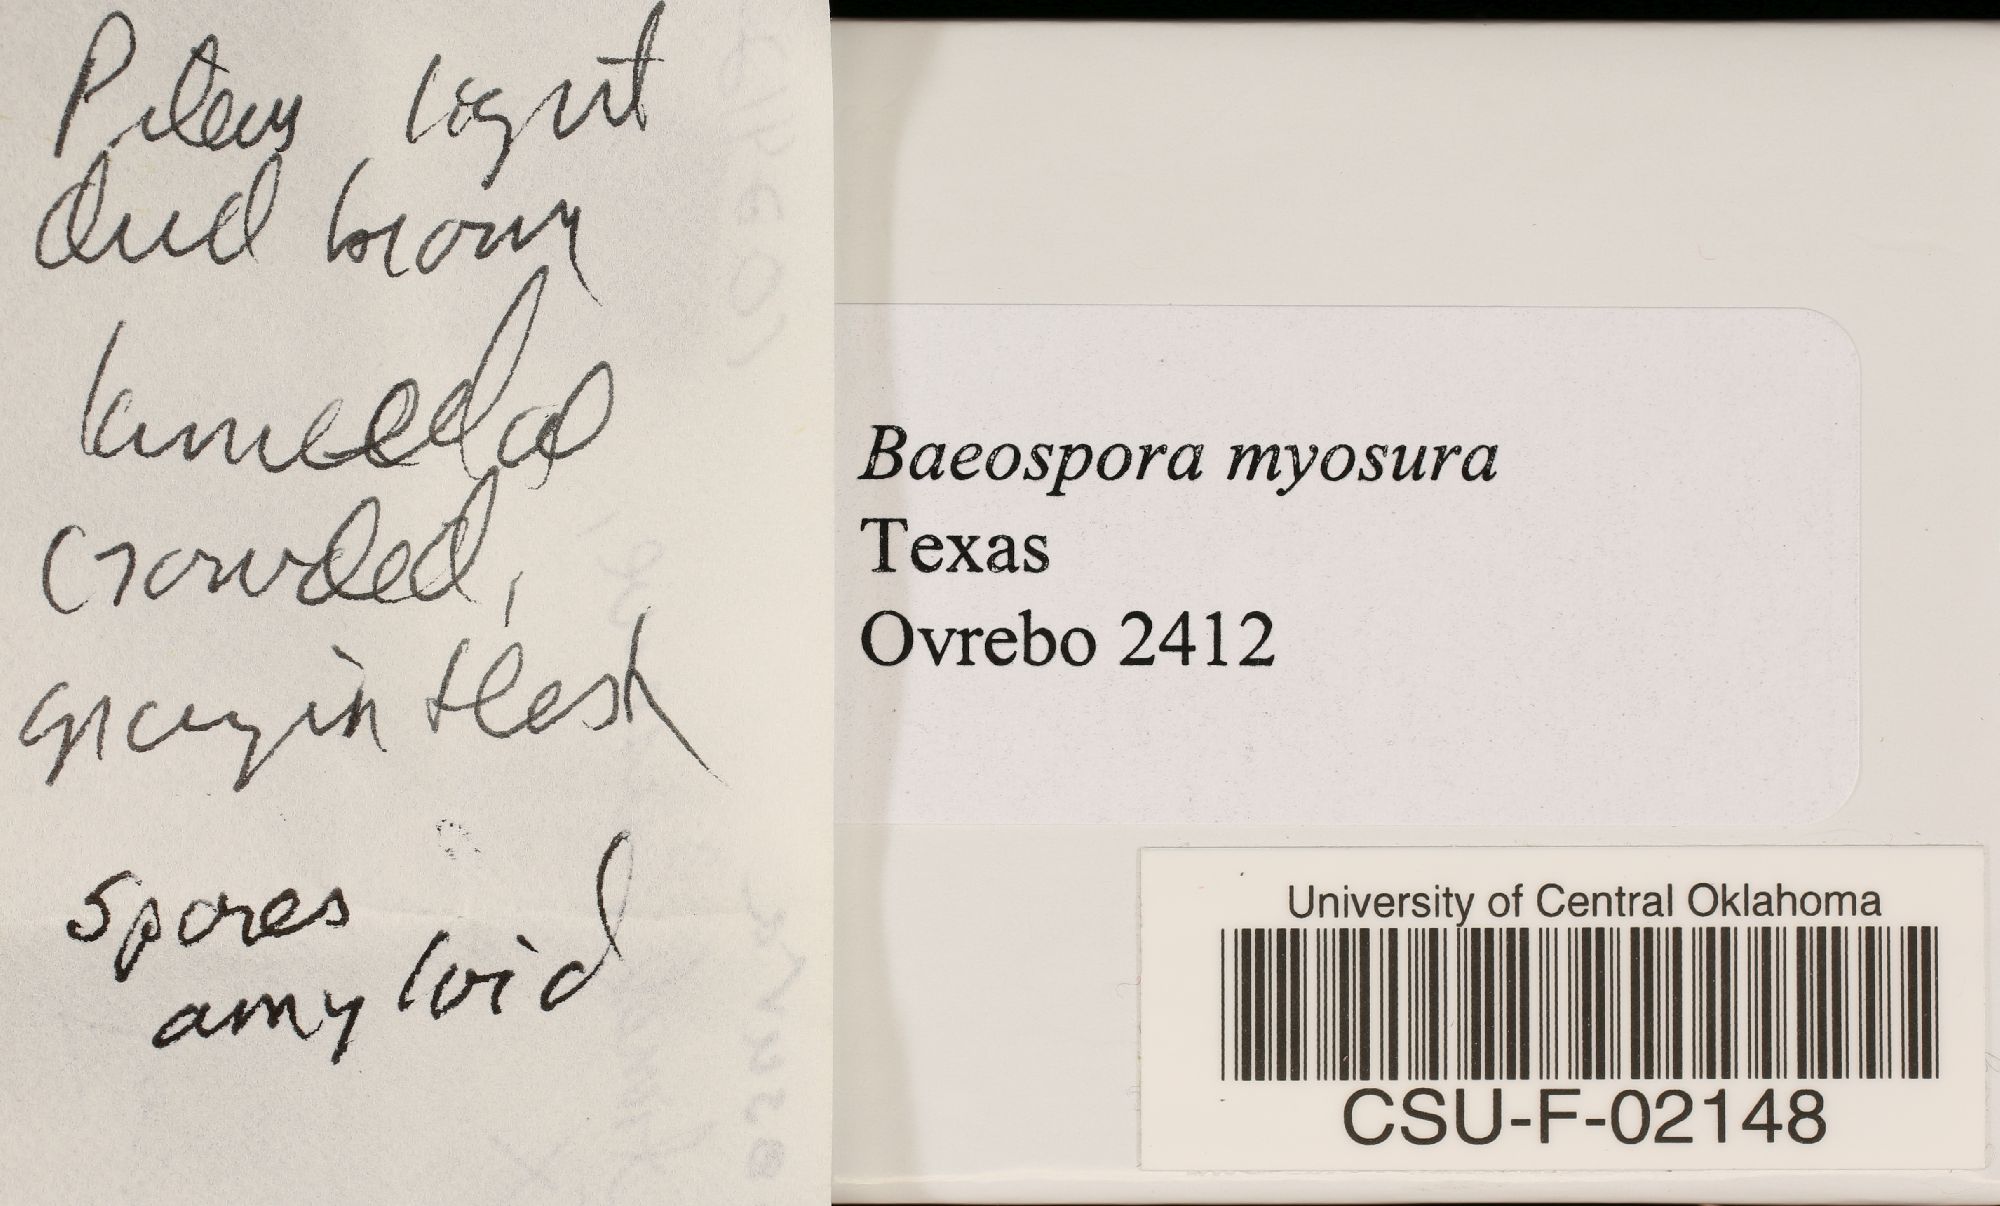 Pileus light
dull brown
lamellae
crowded,
grayin flesh
spores
amyloid
Baeospora myosura
Texas
Ovrebo 2412
University of Central Oklahoma
CSU-F-02148